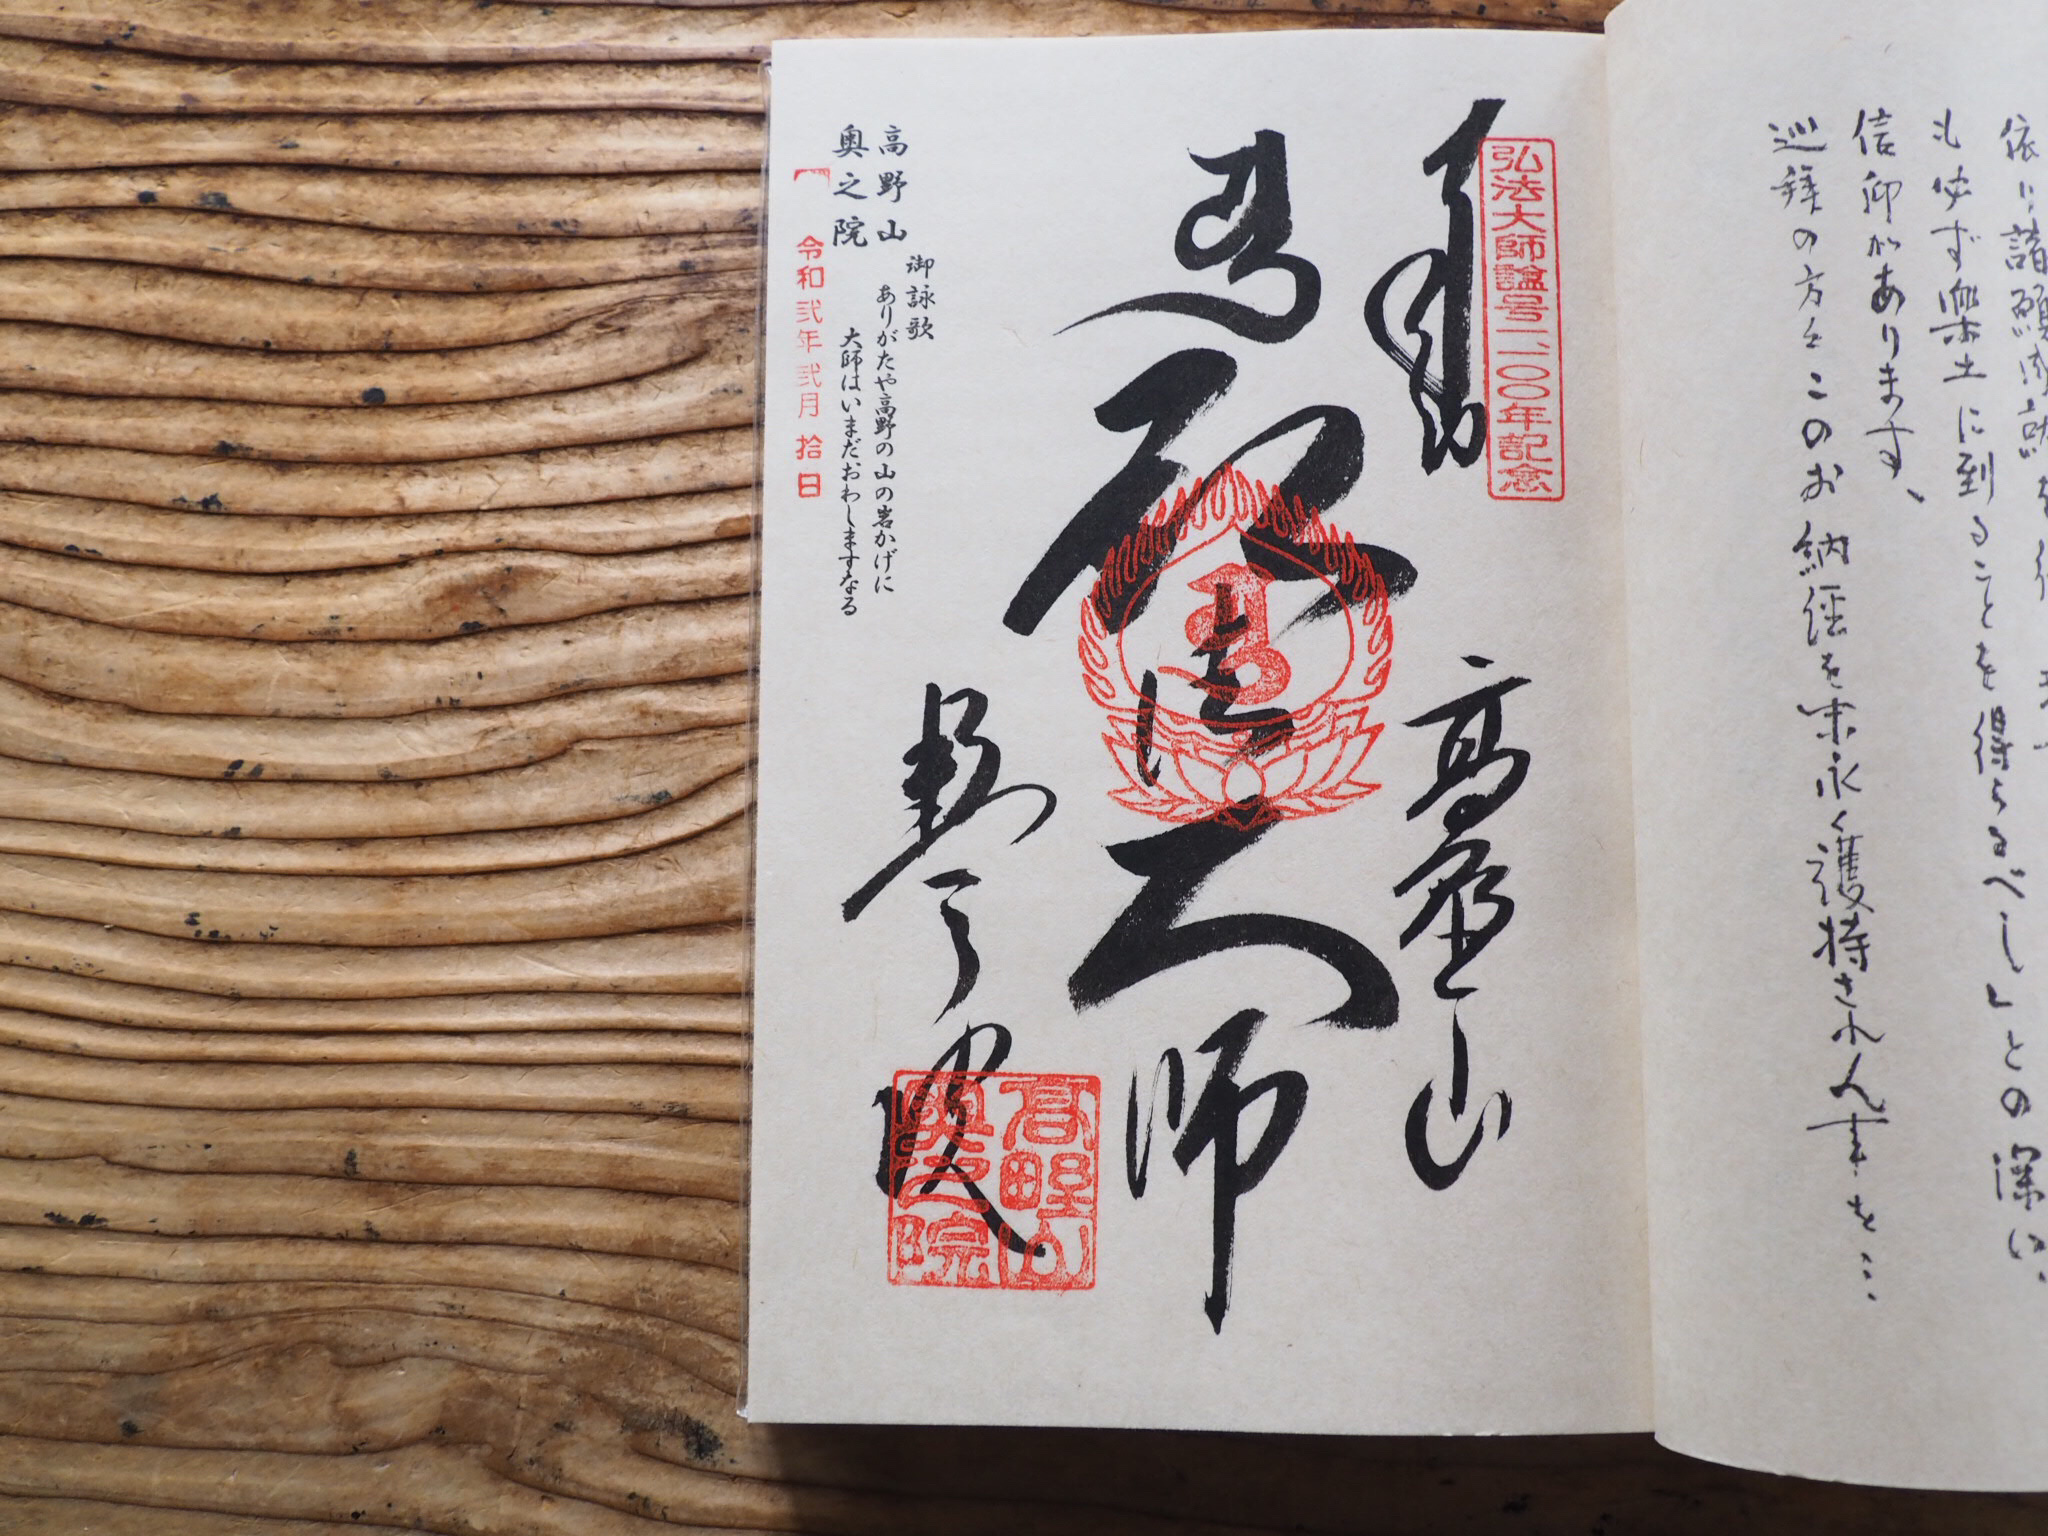 依り諸願成就を
もせず楽土に到ることを得らるべし」との深い
信仰があります、
巡拝の方々このお納経を末永く護持されん事を…
弘法大師諡号一一〇〇年記念
奉納
高野山
弘法大師
奥之院
高野山
奥之院
御詠歌
ありがたや高野の山の岩かげに
大師はいまだおわしますなる
高野山
奥之院
令和弐年弐月拾日